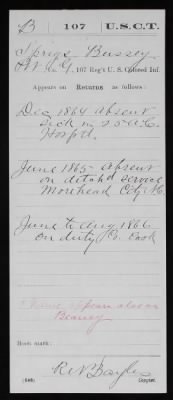 B | 107 | U.S.C.T.
Sprigs Bussey
Pvt. Co. G, 107 Reg't U. S. Colored Inf.
Appears on Returns as follows:
Dec 1864 absent
Sick in 25 A.C.
Hospt'l.
June 1865 Absent
on detach'd service
Morehead City N.C.
June to Aug 1866
on duty Co. Cook
Name appears also as
Beausey
Book mark:
Copyist.